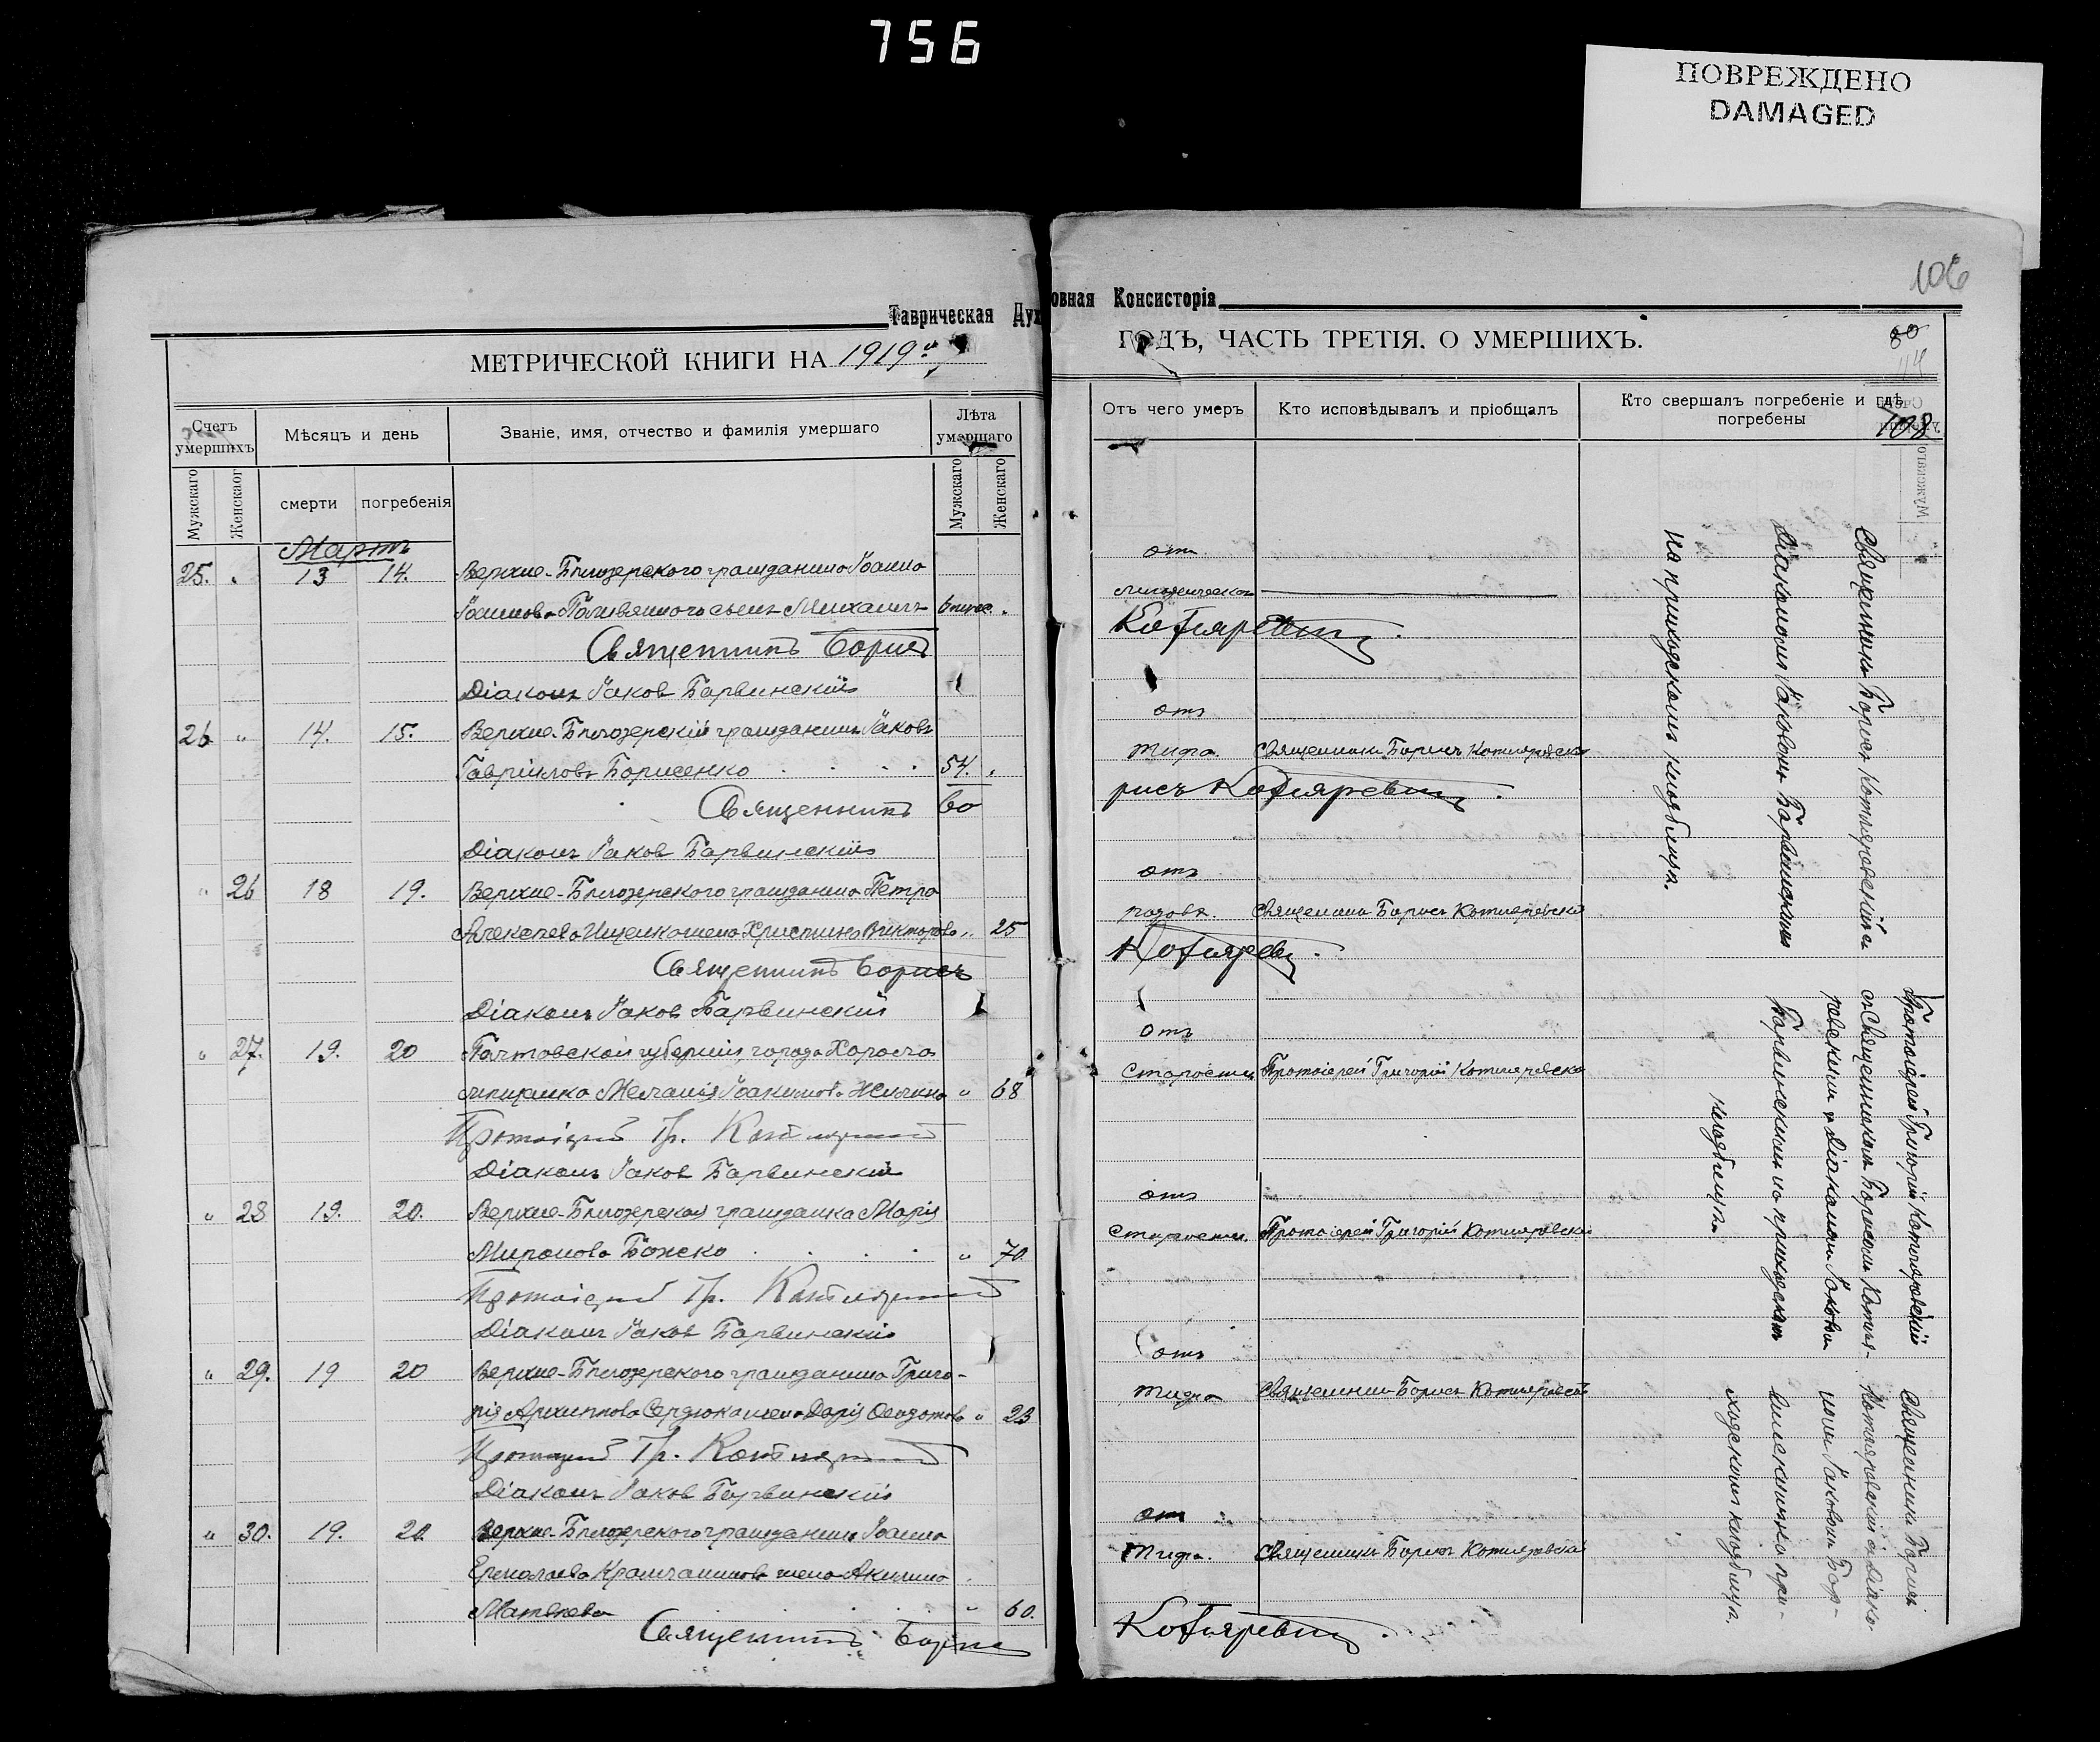 756
ПОВРЕЖДЕНО
DAMAGED
106
Таврическая Духовная Консисторія
МЕТРИЧЕСКОЙ КНИГИ НА 1919й
ГОДЪ, ЧАСТЬ ТРЕТІЯ. О УМЕРШИХЪ.
80
114
108
Счетъ умершихъ
Мѣсяцъ и день
Званіе, имя, отчество и фамилія умершаго
Лѣта умершаго
Отъ чего умеръ
Кто исповѣдывалъ и пріобщалъ
Кто свершалъ погребеніе и гдѣ погребены
Мужскаго
Женскаго
смерти
погребенія
Мужскаго
Женскаго
Мартъ
25. " 13 14. Верхне-Бѣлозерского гражданина Іоанна
отъ
сынъ Михаилъ 6 мѣс. "
Священникъ Борисъ Котляревскій
Діаконъ Іаковъ Барвинскій
26 " 14. 15. Верхне-Бѣлозерскій гражданинъ Іаковъ
отъ
Гавріиловъ Борисенко 54. "
тифа. Священникъ Борисъ Котляревскій
Священникъ Борисъ Котляревскій
Діаконъ Іаковъ Барвинскій
" 26 18 19. Верхне-Бѣлозерского гражданина Петра
отъ
Алексѣева Ищенка жена Христина Викторова " 25
родовъ. Священникъ Борисъ Котляревскій
Священникъ Борисъ Котляревскій
Діаконъ Іаковъ Барвинскій
" 27. 19. 20 Полтавской губерніи, города Хорола
отъ
мѣщанка Меланія Іоакимова " 68
старости Протоіерей Григорій Котляревскій
Протоіерей Гр. Котляревскій
Діаконъ Іаковъ Барвинскій
" 28 19. 20. Верхне-Бѣлозерская гражданка Марія
отъ
Миронова Божско " 70.
старости. Протоіерей Григорій Котляревскій
Протоіерей Гр. Котляревскій
Діаконъ Іаковъ Барвинскій
" 29. 19 20 Верхне-Бѣлозерского гражданина Григо-
отъ
рія Архиппова Сердюка жена Дарія " 23
тифа Священникъ Борисъ Котляревскій
Протоіерей Гр. Котляревскій
Діаконъ Іаковъ Барвинскій
" 30. 19. 20 Верхне-Бѣлозерского гражданина Іоанна
отъ
Ермолаева жена Акилина
тифа. Священникъ Борисъ Котляревскій
Матвѣева " 60.
Священникъ Борисъ Котляревскій
Священникъ Борисъ Котляревскій съ
Діакономъ Іаковомъ Барвинскимъ
на приходскомъ кладбищѣ.
Протоіерей Григорій Котляревскій
съ Священникомъ Борисомъ Котля-
ревскимъ и Діакономъ Іаковомъ
Барвинскимъ на приходскомъ
кладбищѣ.
Священникъ Борисъ
Котляревскій съ Діако-
номъ Іаковомъ Бар-
винскимъ на при-
ходскомъ кладбищѣ.